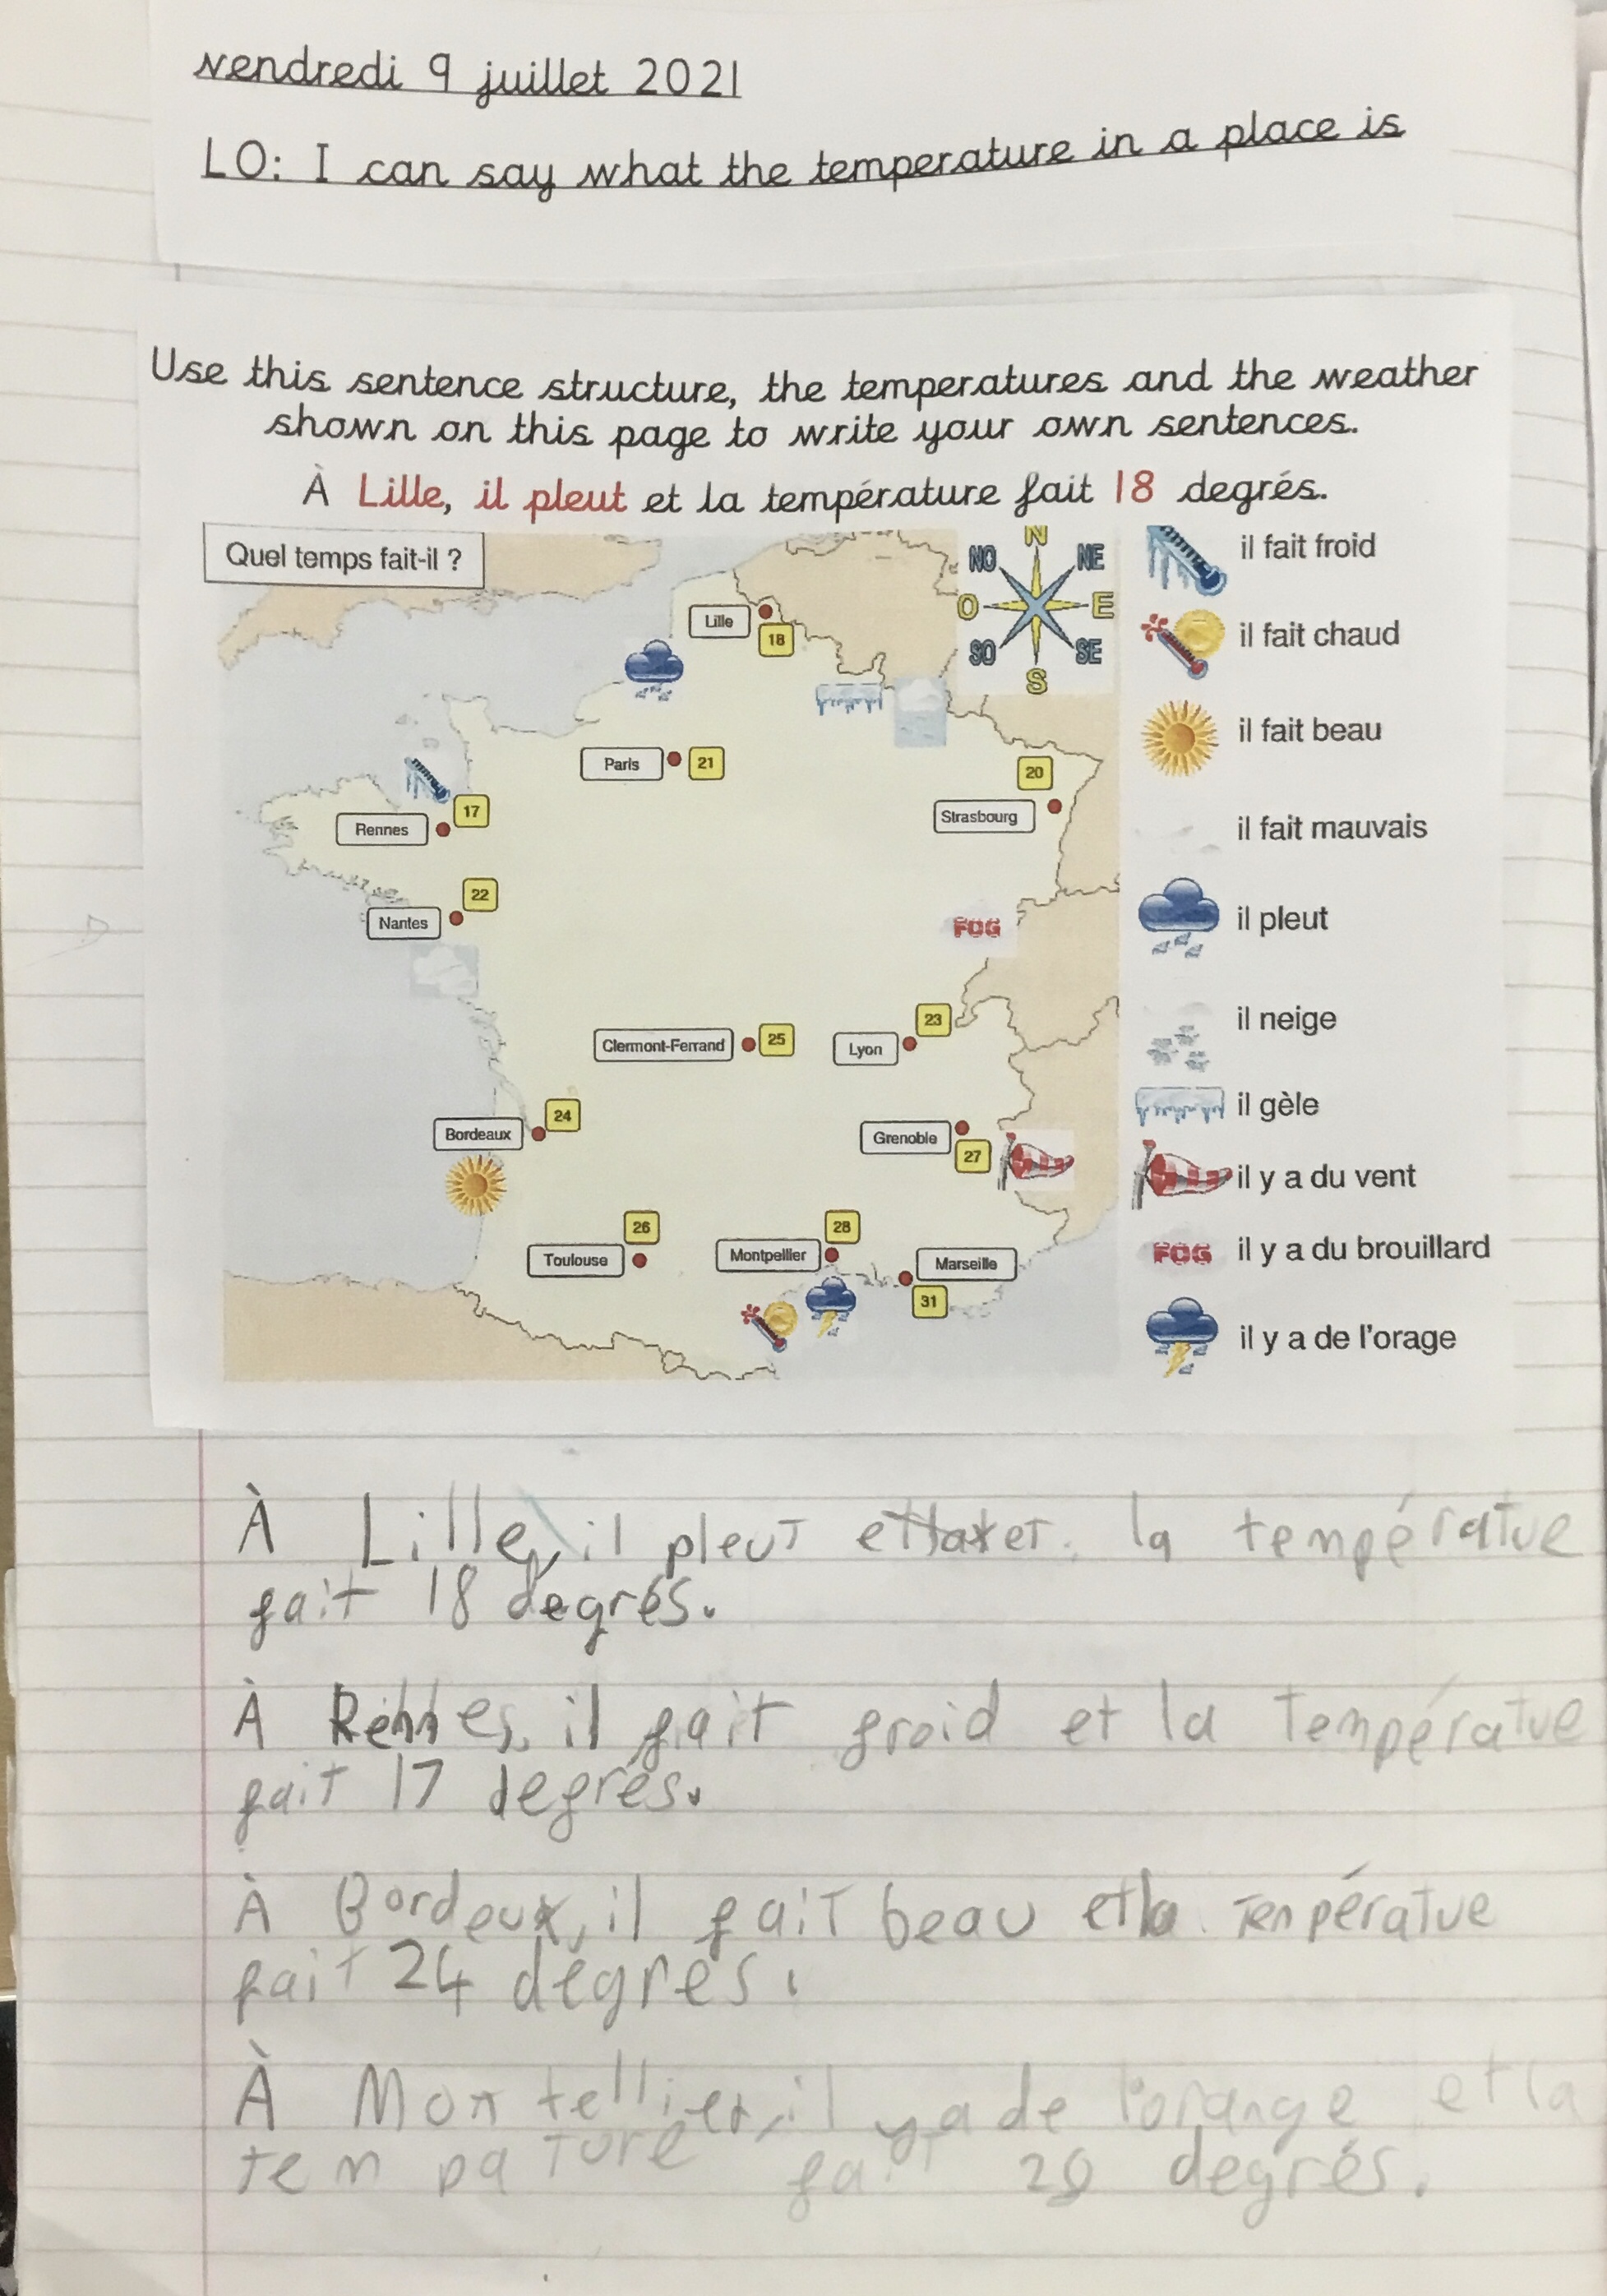 vendredi 9 juillet 2021
LO: I can say what the temperature in a place is
Use this sentence structure, the temperatures and the weather
shown on this page to write your own sentences.
À Lille, il pleut et la température fait 18 degrés.
Quel temps fait-il ?
N
NO
NE
O
E
SO
SE
S
Lille
18
Paris
21
20
Strasbourg
17
Rennes
22
Nantes
FOG
Clermont-Ferrand
25
23
Lyon
24
Bordeaux
Grenoble
27
26
Toulouse
28
Montpellier
Marseille
31
il fait froid
il fait chaud
il fait beau
il fait mauvais
il pleut
il neige
il gèle
il y a du vent
FOG
il y a du brouillard
il y a de l'orage
À Lille, il pleut et la températue
fait 18 degrés.
À Rennes, il fait froid et la températue
fait 17 degrés.
À Bordeux, il fait beau et la tenpératue
fait 24 dégrés.
À Montellier, il y a de l'orange et la
tempature fait 28 degrés.